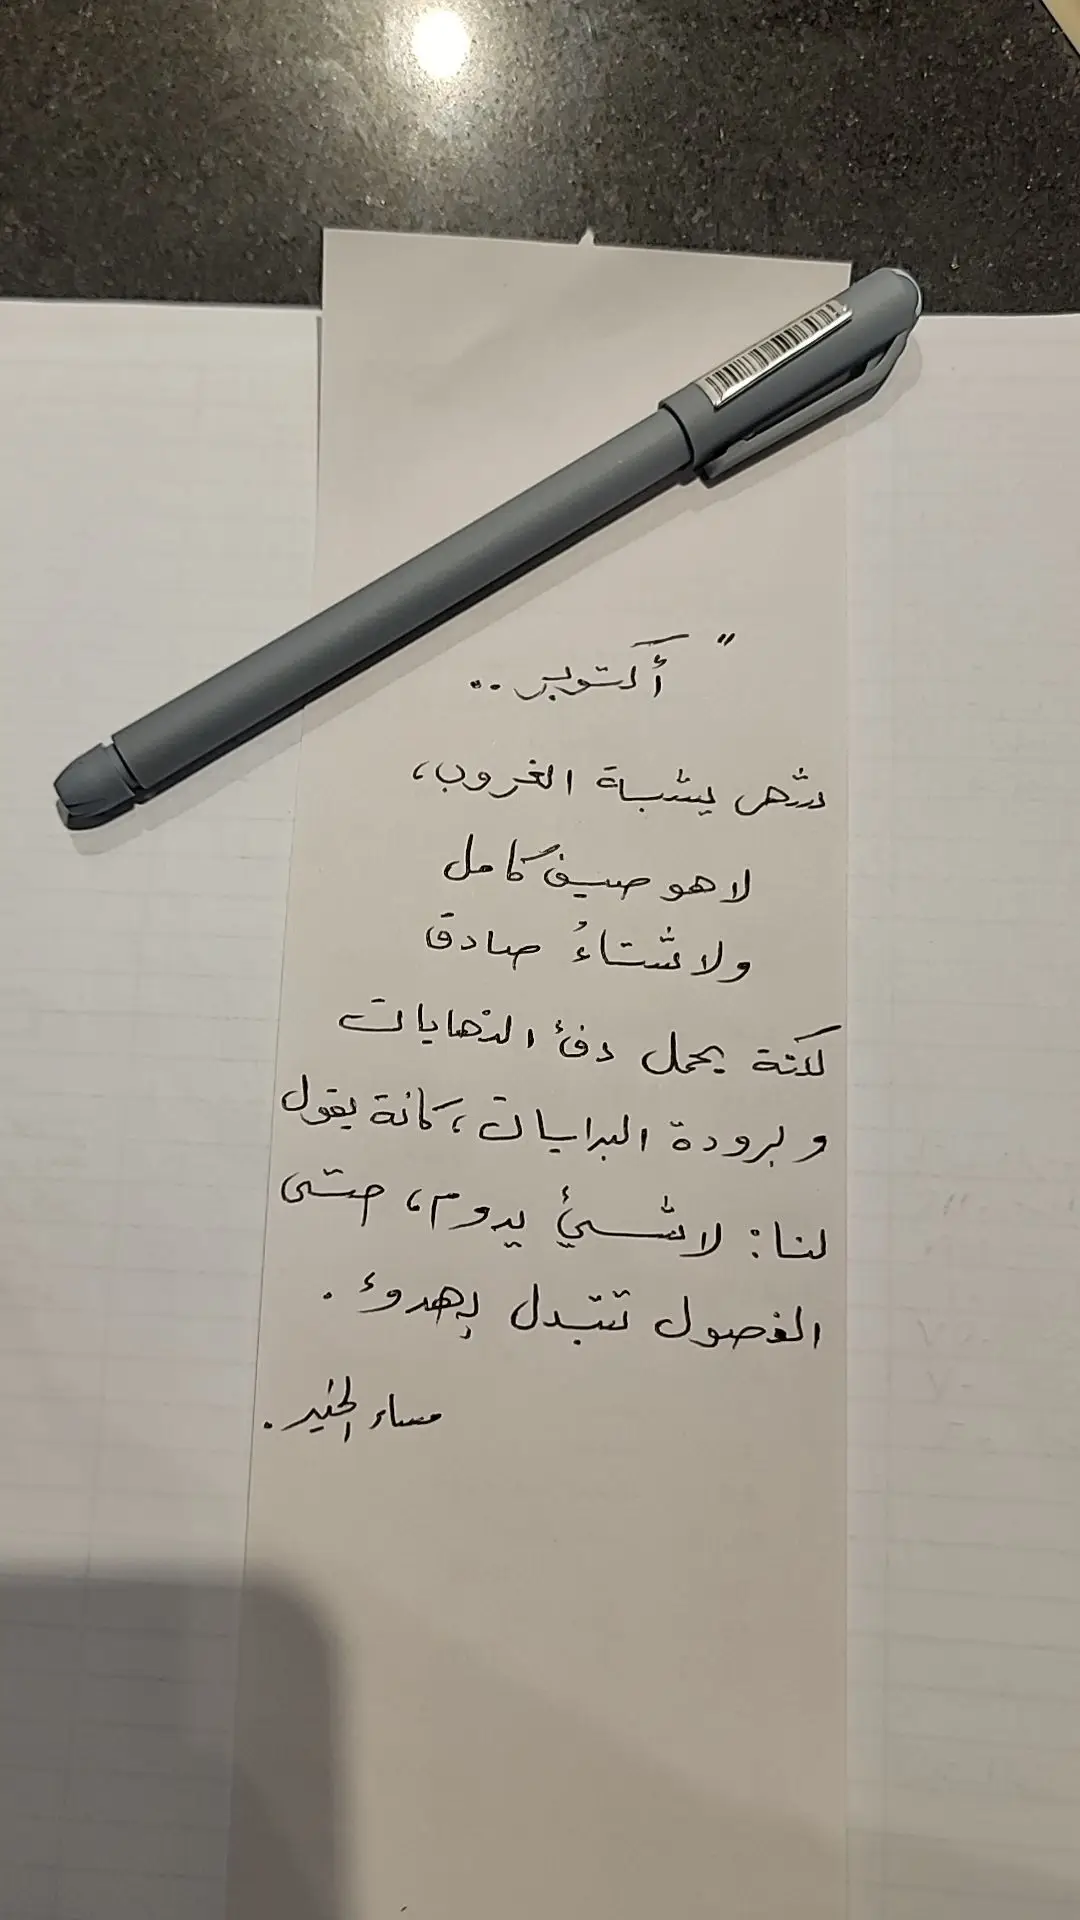 " أكتوبر ..
شهر يشبة الغروب،
لا هو صيف كامل
ولا شتاءُ صادق
لكنة يحمل دفئ النهايات
وبرودة البدايات، كانة يقول
لنا: لا شيئ يدوم، حتى
الفصول تتبدل بهدوئ .
مساء الخير .